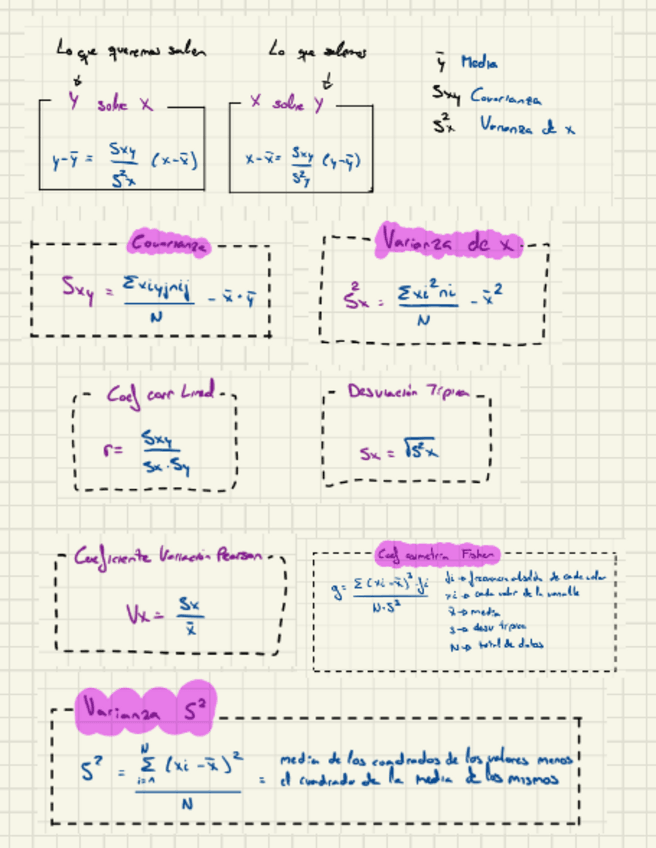 Lo que queremos saber
Lo que sabemos
Y sobre X
y-ȳ = Sxy / S²x (x-x̄)
X sobre Y
x-x̄ = Sxy / S²y (y-ȳ)
ȳ Media
Sxy Covarianza
S²x Varianza de x
Covarianza
Sxy = Σxiyjnij / N - x̄·ȳ
Varianza de x
S²x = Σxi²ni / N - x̄²
Coef corr Lineal
r = Sxy / Sx·Sy
Desviación Típica
Sx = √S²x
Coeficiente Variación Pearson
Vx = Sx / x̄
Coef asimetría Fisher
g = Σ(xi-x̄) fi / N·S
fi → frecuencia absoluta de cada valor
xi → cada valor de la variable
x̄ → media
s → desv típica
N → total de datos
Varianza S²
S² = Σ (xi - x̄)² / N =
N
i=1
media de los cuadrados de los valores menos
el cuadrado de la media de los mismos